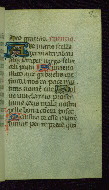 Deo gratias.
Ave maris stella
dei mater alma at
que semper virgo felix
celi porta Sumens
illud ave gabrielis o
re funda nos in pa
ce mutans nomen
eve Solve vincla
reis profer lumen
cecis mala nostra
pelle bona cuncta
posce Monstra te esse
matrem sumat per te prec